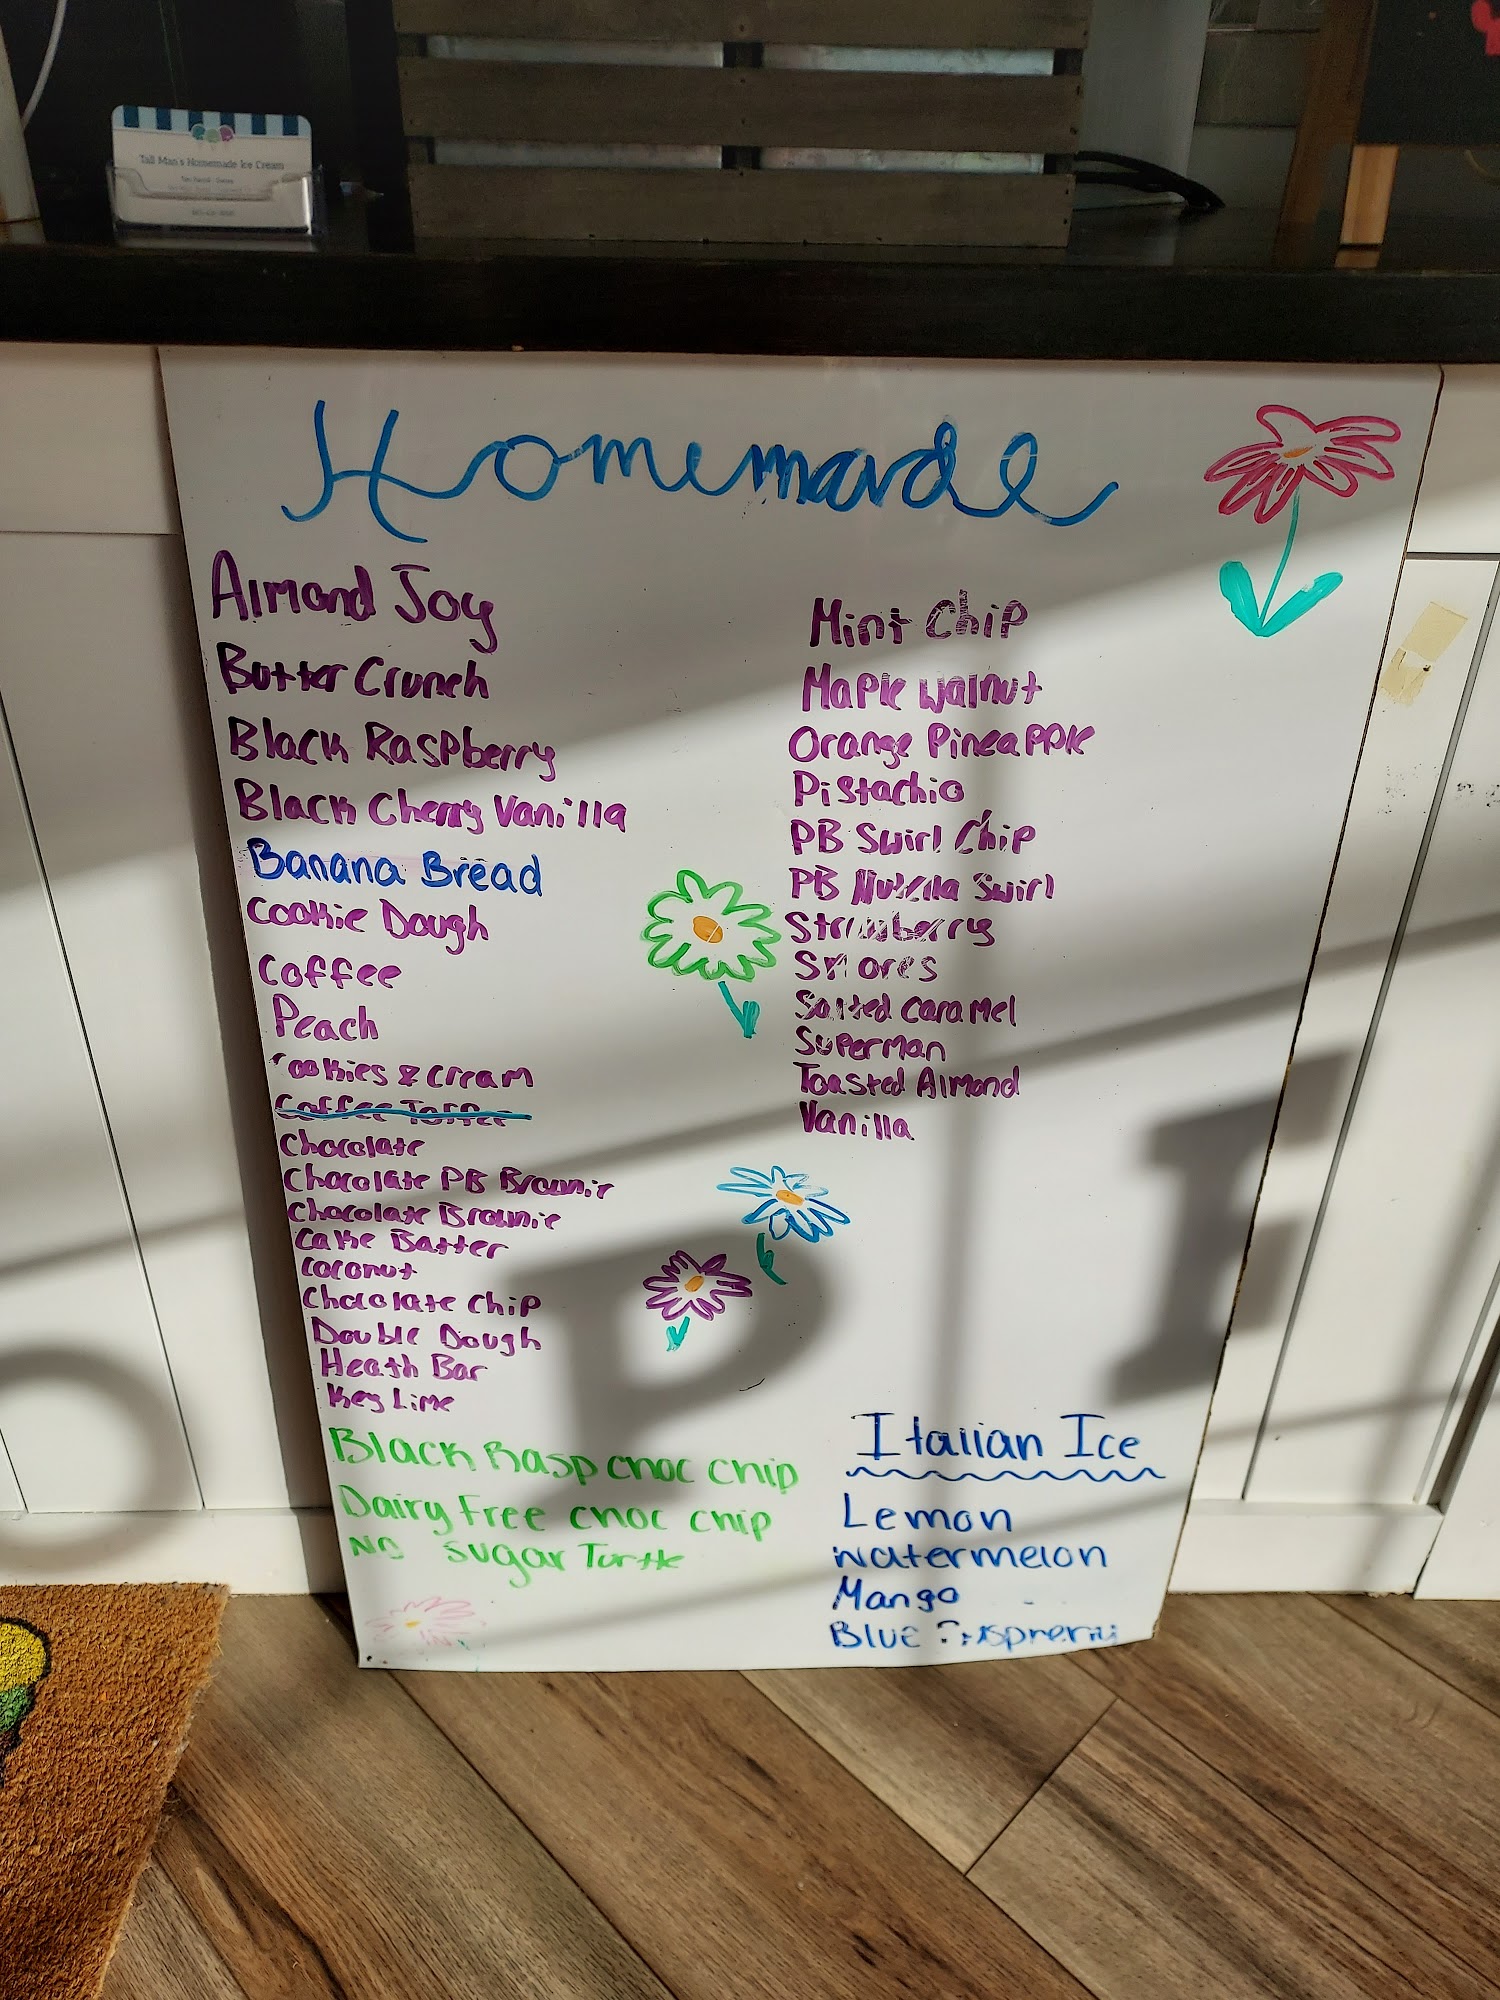 Tall Man's Homemade Ice Cream
Homemade
Almond Joy
Butter Crunch
Black Raspberry
Black Cherry Vanilla
Banana Bread
Cookie Dough
Coffee
Peach
ookies & Cream
Coffee Toffee
Chocolate
Chocolate PB Brownie
Chocolate Brownie
Cake Batter
Coconut
Chocolate Chip
Double Dough
Heath Bar
Key Lime
Black Rasp choc chip
Dairy Free choc chip
No Sugar Turtle
Mint Chip
Maple Walnut
Orange Pineapple
Pistachio
PB Swirl Chip
PB Nutella Swirl
Strawberry
Smores
Salted Caramel
Superman
Toasted Almond
Vanilla
Italian Ice
Lemon
Watermelon
Mango
Blue